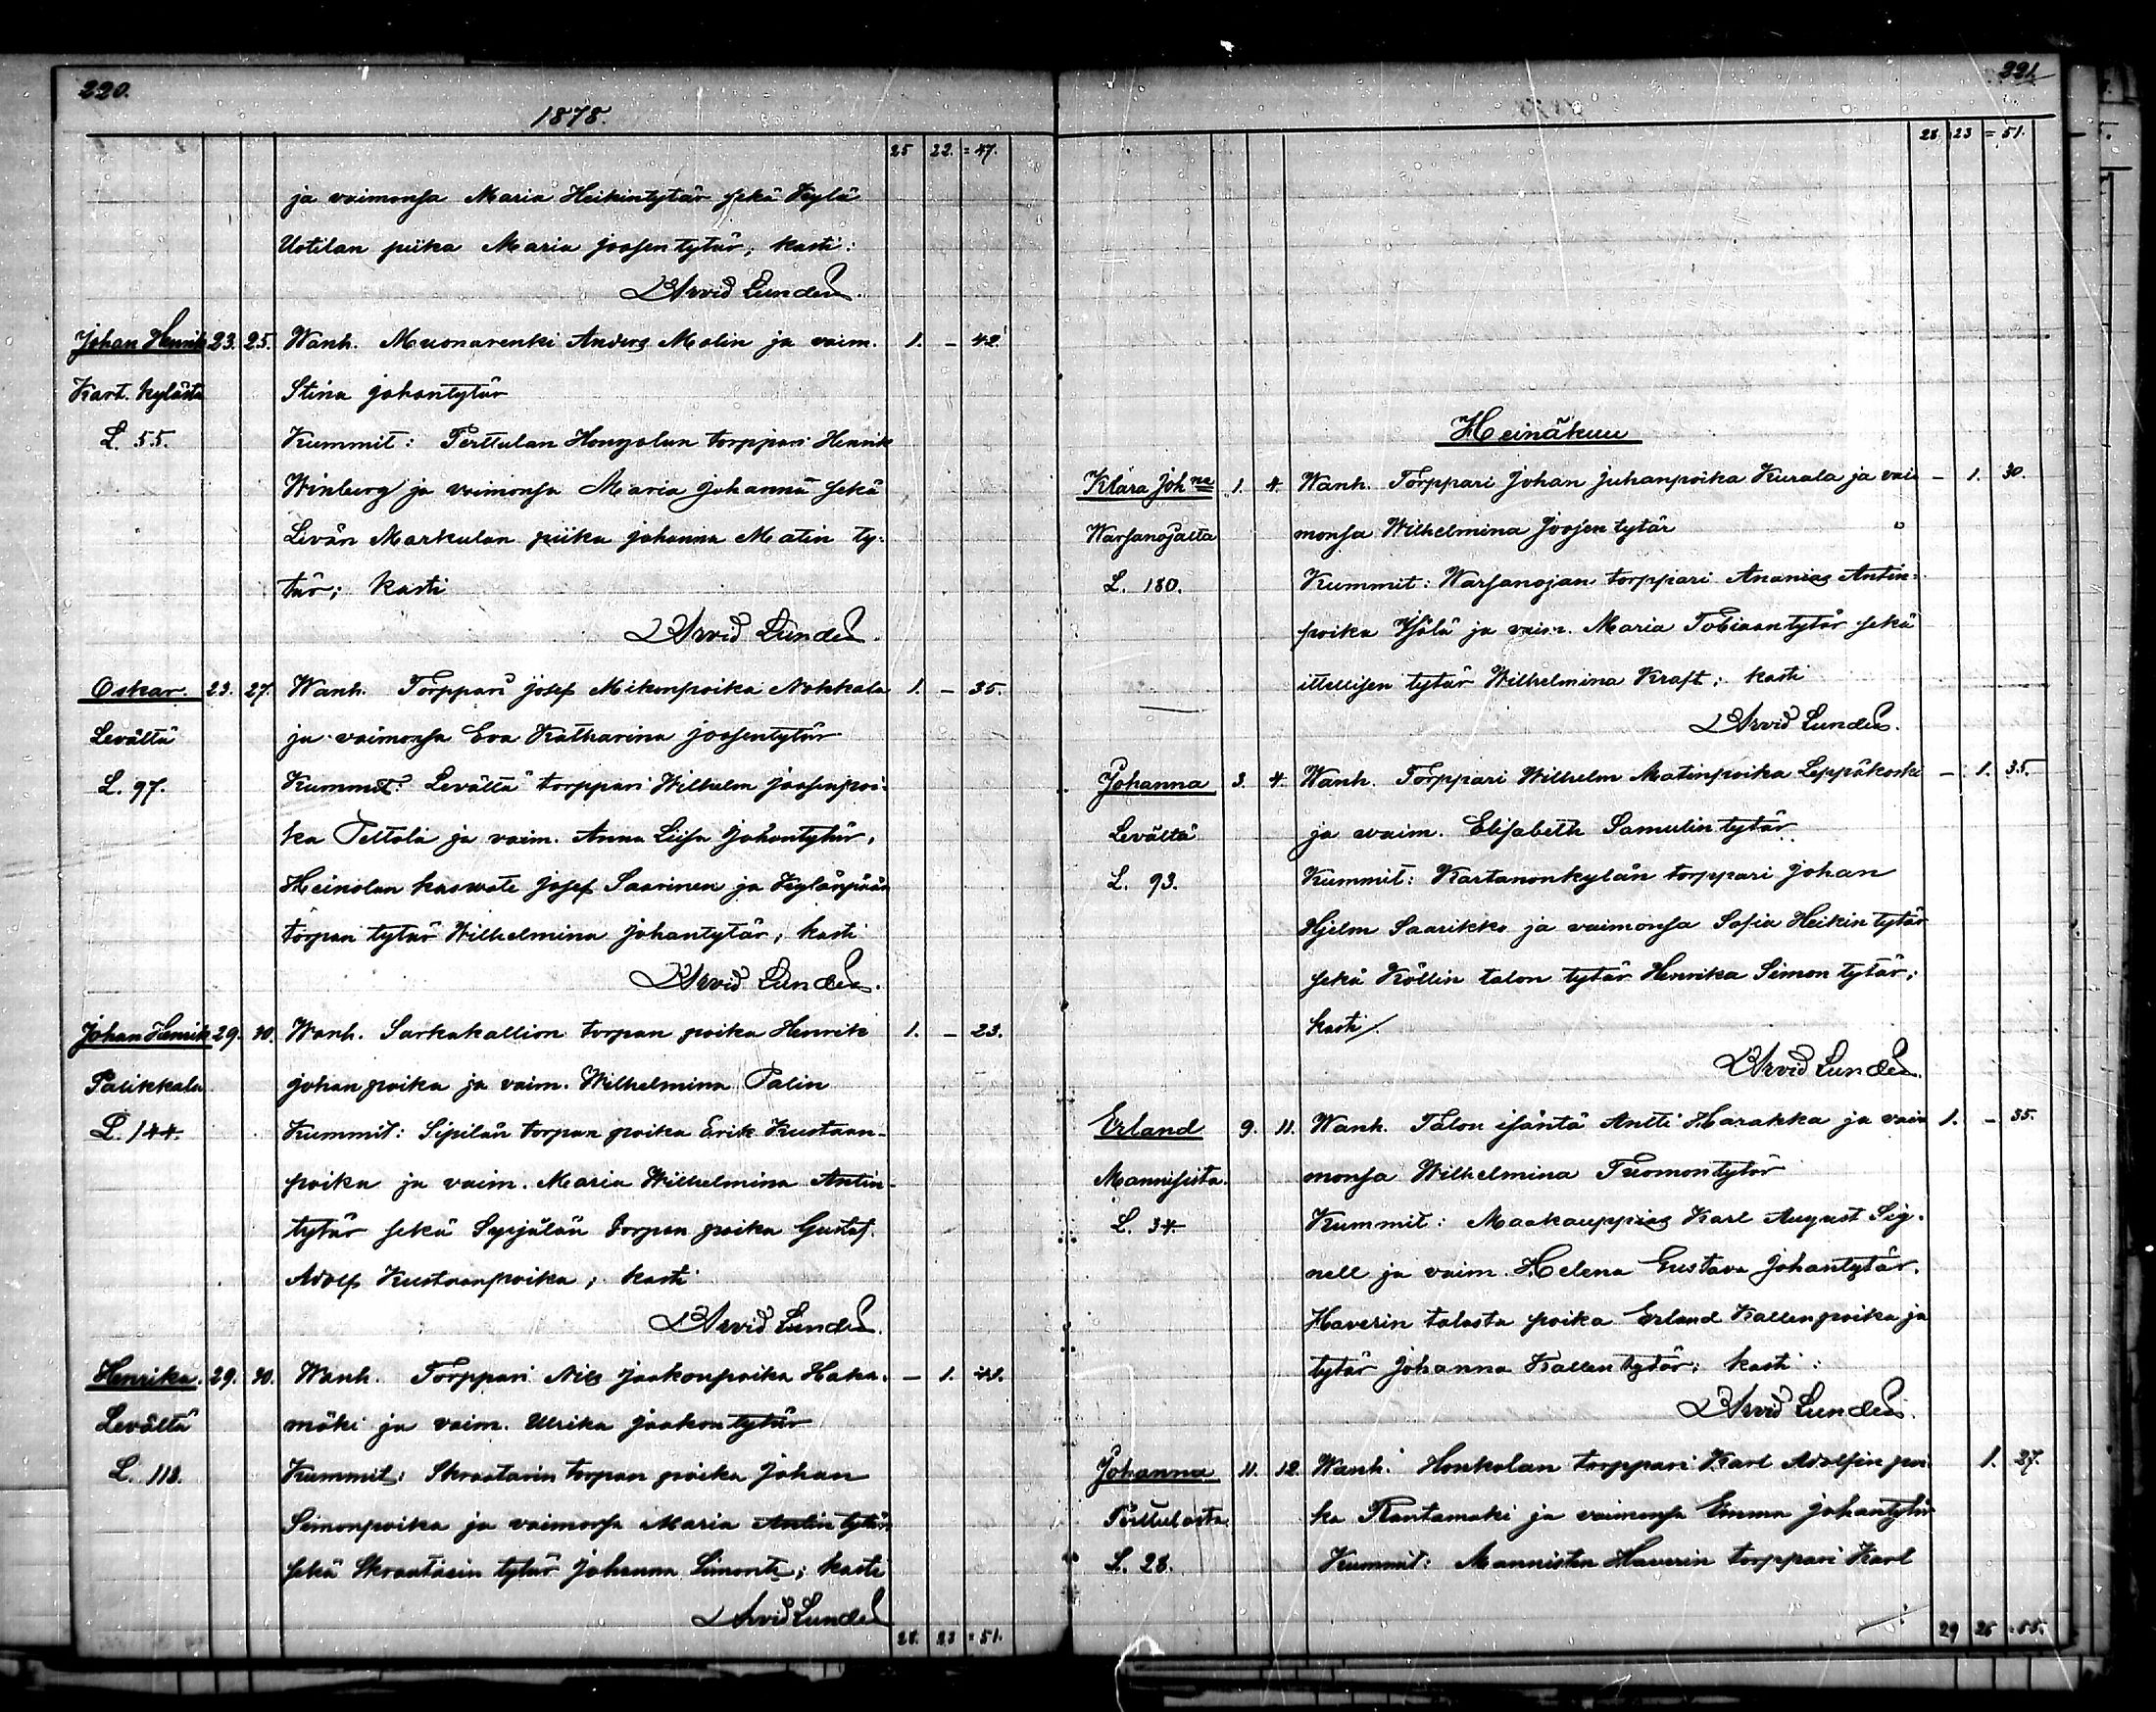 220.
1878.
25 22. = 47.
ja vaimonsa Maria Heikintytär sekä Kylä
Uotilan piika Maria Joosentytär; kasti:
Arvid Lundén.
Johan Henrik 23. 25. Wanh. Muonarenki Anders Malin ja vaim. 1. – 42.
Kart. kylästä Stina Johantytär
L. 55. Kummit: Perttulan Hongolan torppari Henrik
Winberg ja vaimonsa Maria Johanna sekä
Levän Markulan piika Johanna Matin ty-
tär; kasti
Arvid Lundén.
Oskar. 23. 27. Wanh. Torppari Josef Mikonpoika Nokkala 1. – 35.
Levältä ja vaimonsa Eva Katharina Joosentytär
L. 97. Kummit: Levältä torppari Wilhelm Joosenpoi-
ka Peltola ja vaim. Anna Liisa Johantytär,
Heinolan kasvate Josef Saarinen ja Kylänpään
torpan tytär Wilhelmina Johantytär; kasti
Arvid Lundén.
Johan Henrik 29. 30. Wanh. Sarkakallion torpan poika Henrik 1. – 23.
Palikkala Johanpoika ja vaim. Wilhelmina Palin
L. 144. Kummit: Sipilän torpan poika Erik Kustaan-
poika ja vaim. Maria Wilhelmina Antin-
tytär sekä Syrjälän torpan poika Gustaf
Adolf Kustaanpoika; kasti
Arvid Lundén.
Henrika. 29. 30. Wanh. Torppari Nils Jaakonpoika Haka- – 1. 41.
Levältä mäki ja vaim. Ulrika Jaakontytär
L. 118. Kummit: Skraatarin torpan poika Johan
Simonpoika ja vaimonsa Maria Antintytär
sekä Skraatarin tytär Johanna Simont.; kasti
Arvid Lundén
28. 23 = 51.
221.
28. 23 = 51.
Heinäkuu
Klara Joh:na 1. 4. Wanh. Torppari Johan Juhanpoika Kurala ja vai- – 1. 30.
Warsanojalta monsa Wilhelmina Joosentytär
L. 180. Kummit: Warsanojan torppari Ananias Antin-
poika Ylälä ja vaim. Maria Tobiaantytär sekä
itellisen tytär Wilhelmina Kraft; kasti
Arvid Lundén.
Johanna 3. 4. Wanh. Torppari Wilhelm Matinpoika Leppäkoski – 1. 35.
Levältä ja vaim. Elisabeth Samulintytär.
L. 93. Kummit: Kartanonkylän torppari Johan
Hjelm Saarikko ja vaimonsa Sofia Heikintytär
sekä Köllin talon tytär Henrika Simontytär;
kasti
Arvid Lundén.
Erland 9. 11. Wanh. Talon isäntä Antti Harakka ja vai- 1. – 35.
Mannisista monsa Wilhelmina Tuomontytär
L. 34. Kummit: Maakauppias Karl August Sig-
nell ja vaim. Helena Gustava Johantytär.
Haverin talosta poika Erland Kallenpoika ja
tytär Johanna Kallentytär; kasti:
Arvid Lundén.
Johanna 11. 12. Wanh. Honkolan torppari Karl Adolfinpoi- 1. 27.
Perttulasta ka Rantamäki ja vaimonsa Emma Johantytär
L. 28. Kummit: Mannisten Haverin torppari Karl
29 26 = 55.